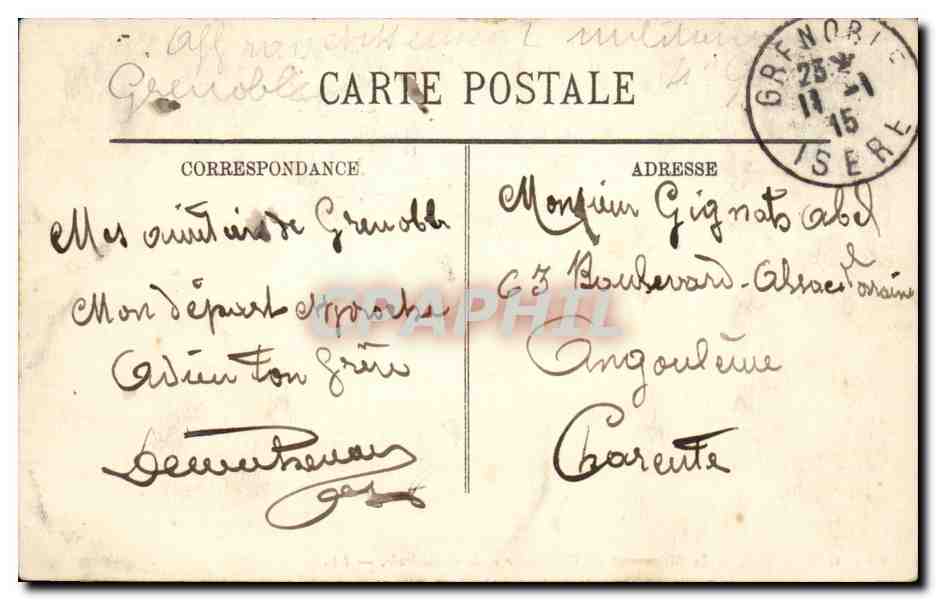 Affranchissement militaire
Grenoble
CARTE POSTALE
GRENOBLE
23
11 -1
15
ISERE
CORRESPONDANCE
Mes amitiés de Grenoble
Mon départ Approche
Adieu ton frère
ADRESSE
Monsieur Gignats Abel
63 Boulevard Alsace Lorraine
Angoulême
Charente
CPAPHIL